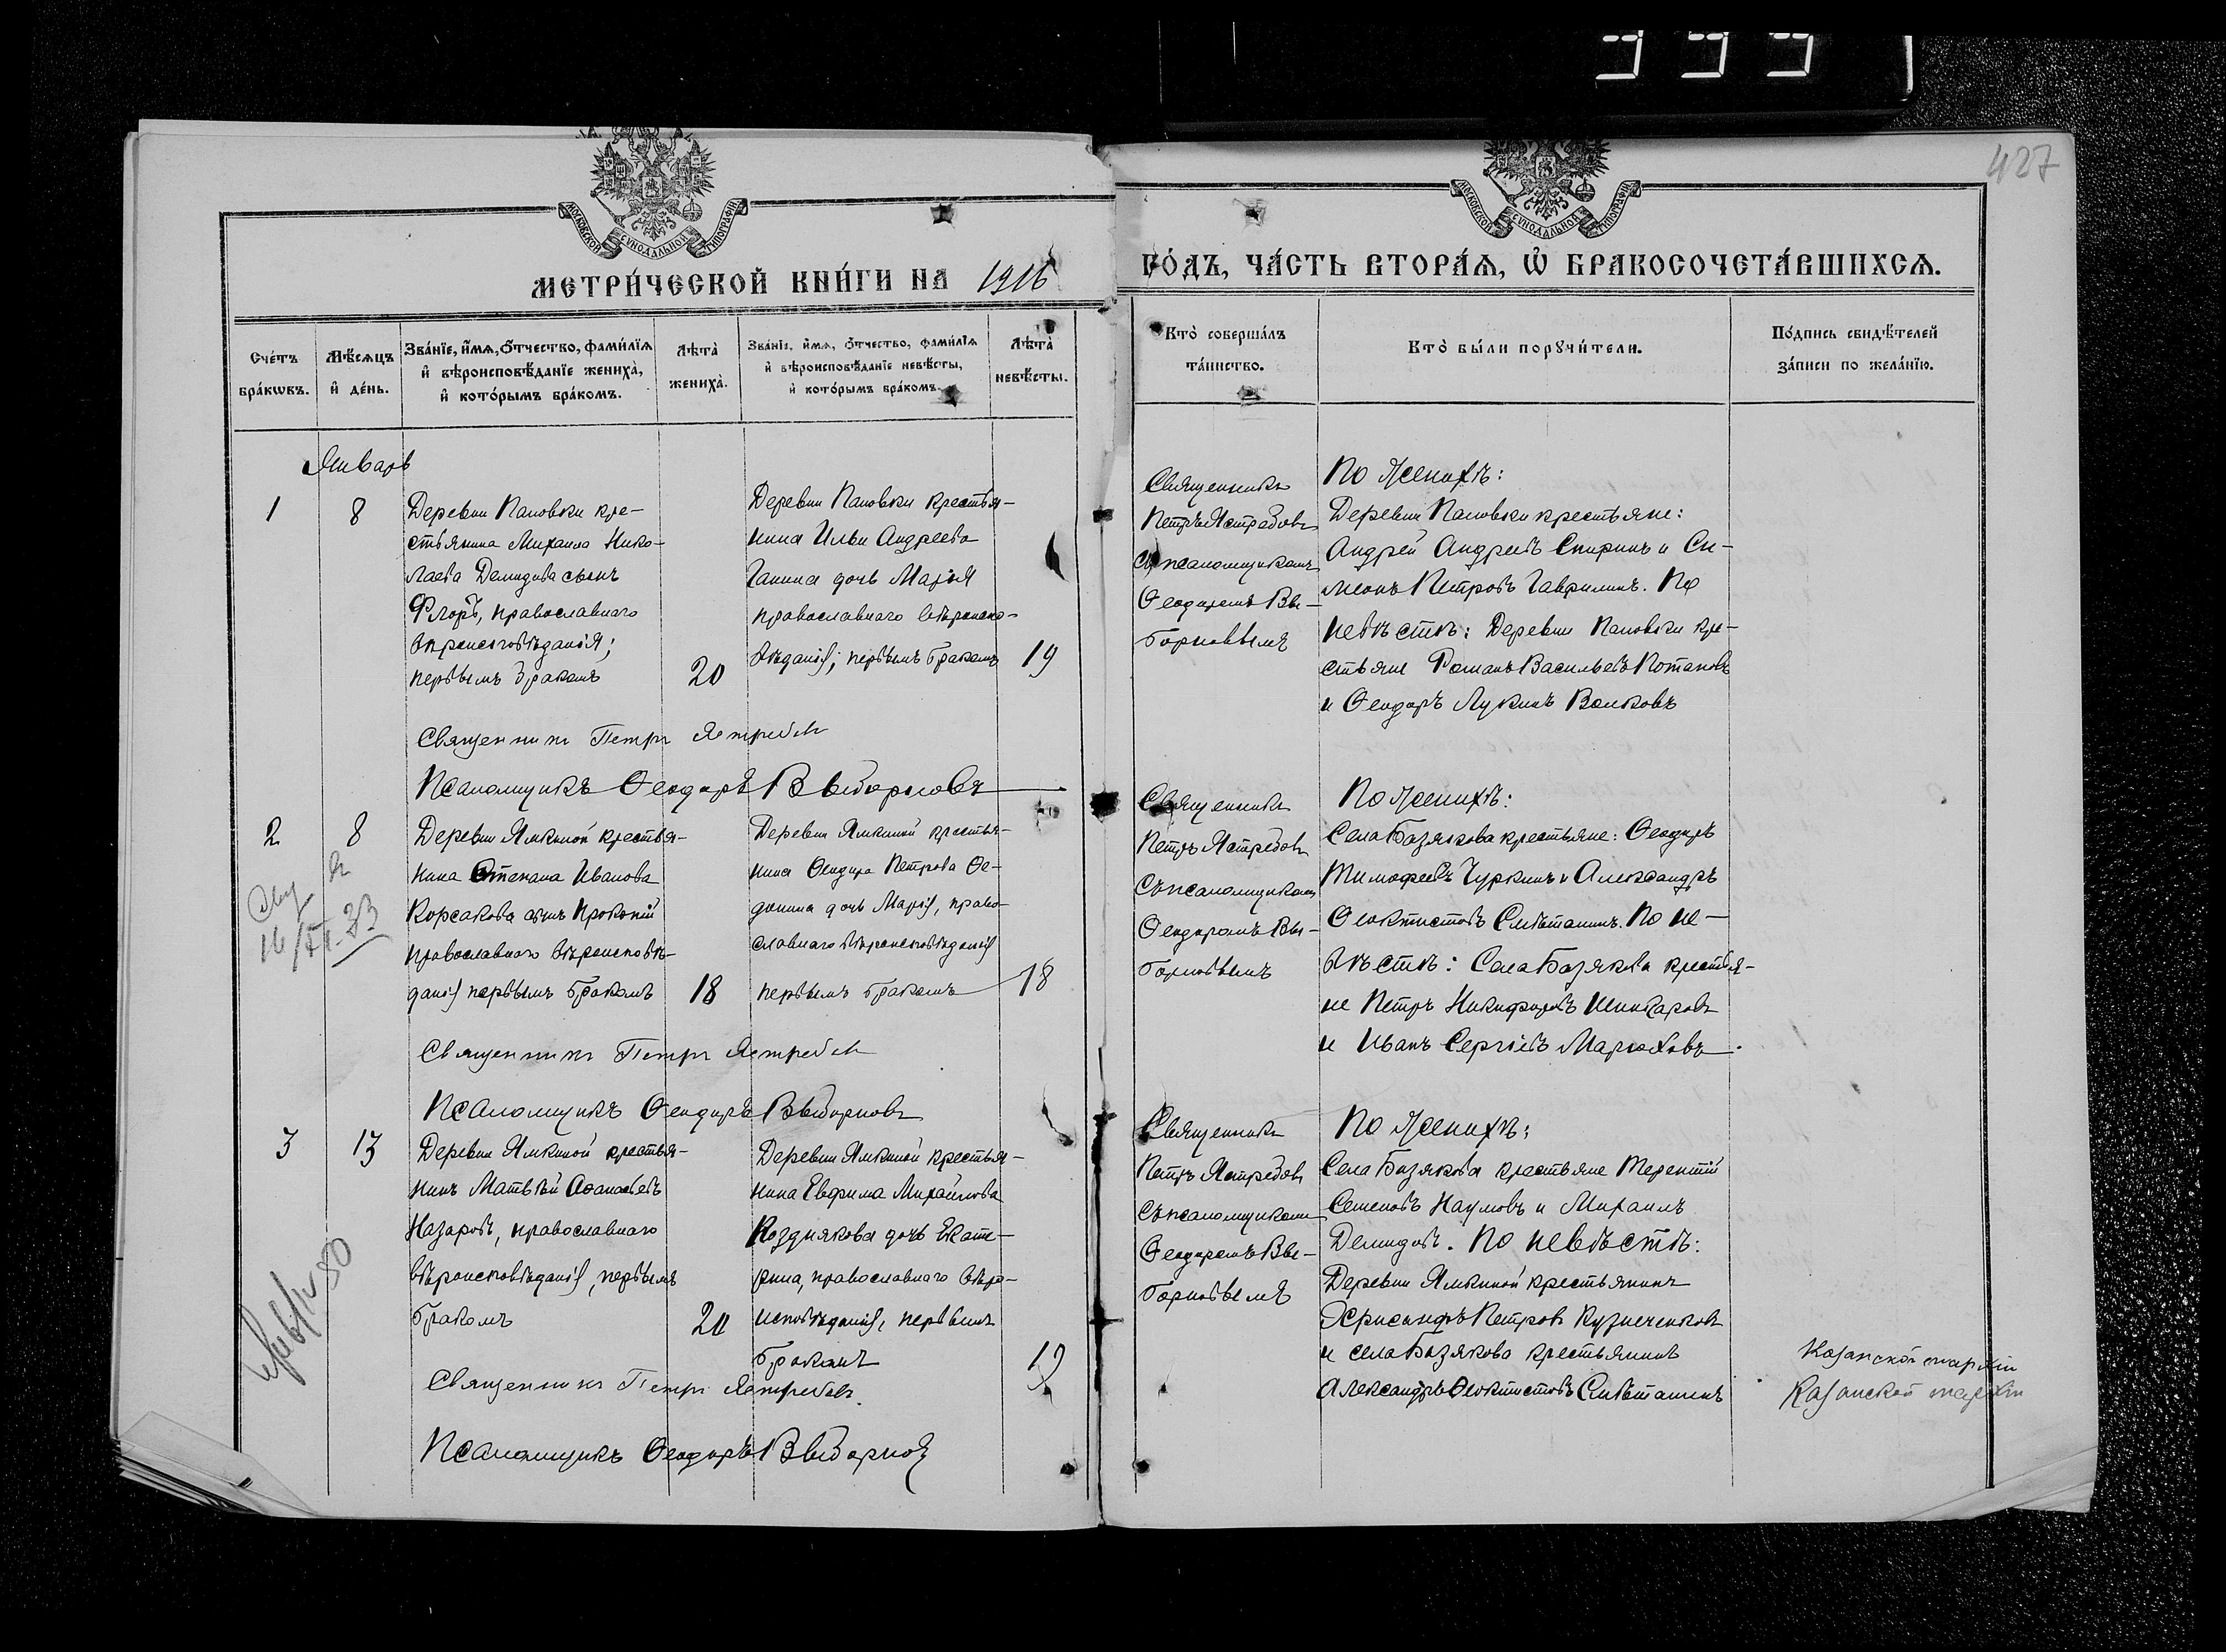 999
427
МОСКОВСКОЙ СѴНОДАЛЬНОЙ ТИПОГРАФІИ
МОСКОВСКОЙ СѴНОДАЛЬНОЙ ТИПОГРАФІИ
МЕТРИ́ЧЕСКОЙ КНИ́ГИ НА 1916 ГО́ДЪ, ЧА́СТЬ ВТОРА́Я, Ѡ҆ БРАКОСОЧЕТА́ВШИХСѦ.
Сче́тъ бра́кѡвъ.
Мѣ́сяцъ и҆ де́нь.
Зва́нїе, и҆́мѧ, ѻ҆́тчество, фами́лїѧ и҆ вѣроисповѣ́данїе жениха̀, и҆ кото́рымъ бра́комъ.
Лѣта̀ жениха̀.
Зва́нїе, и҆́мѧ, ѻ҆́тчество, фами́лїѧ и҆ вѣроисповѣ́данїе невѣ́сты, и҆ кото́рымъ бра́комъ.
Лѣта̀ невѣ́сты.
Кто̀ соверша́лъ та́инство.
Кто̀ бы́ли порꙋчи́тели.
По́дпись свидѣ́телей за́писи по жела́нїю.
Январь
1
8
Деревни Пановки кре-
стьянина Михаила Нико-
лаева Демидова сынъ
Флоръ, православнаго
вѣроисповѣданія;
первымъ бракомъ
20
Деревни Пановки крестья-
нина Ильи Андреева
Ганина дочь Марія
православнаго вѣроиспо-
вѣданія; первымъ бракомъ
19
Священникъ
Петръ Ястребовъ
съ псаломщикомъ
Ѳеодоромъ Вы-
борновымъ
По женихѣ:
Деревни Пановки крестьяне:
Андрей Андреевъ Спиринъ и Си-
меонъ Петровъ Гаврилинъ. По
невѣстѣ: Деревни Пановки кре-
стьяне Романъ Васильевъ Потаповъ
и Ѳеодоръ Лукинъ Волковъ
Священникъ Петръ Ястребовъ
Псаломщикъ Ѳеодоръ Выборновъ
2
8
Деревни Ямкиной крестья-
нина Стефана Иванова
Корсакова сынъ Прокопій
православнаго вѣроисповѣ-
данія первымъ бракомъ
18
Деревни Ямкиной крестья-
нина Ѳеодора Петрова Ѳе-
донина дочь Марія, право-
славнаго вѣроисповѣданія
первымъ бракомъ
18
Священникъ
Петръ Ястребовъ
съ псаломщикомъ
Ѳеодоромъ Вы-
борновымъ
По женихѣ:
Села Базякова крестьяне: Ѳеодоръ
Тимофеевъ Чуркинъ и Александръ
Ѳеоктистовъ Смѣтанинъ. По не-
вѣстѣ: Села Базякова крестья-
не Петръ Никифоровъ
и Иванъ Сергіевъ
Священникъ Петръ Ястребовъ
Псаломщикъ Ѳеодоръ Выборновъ
3
13
Деревни Ямкиной крестья-
нинъ Матвѣй Аѳанасьевъ
Назаровъ, православнаго
вѣроисповѣданія, первымъ
бракомъ
20
Деревни Ямкиной крестья-
нина Евфима Михайлова
Позднякова дочь Екате-
рина, православнаго вѣро-
исповѣданія, первымъ
бракомъ
19
Священникъ
Петръ Ястребовъ
съ псаломщикомъ
Ѳеодоромъ Вы-
борновымъ
По женихѣ:
Села Базякова крестьяне Терентій
Семеновъ Наумовъ и Михаилъ
Демидовъ. По невѣстѣ:
Деревни Ямкиной крестьянинъ
Хрисанфъ Петровъ Кузнеченковъ
и села Базякова крестьянинъ
Александръ Ѳеоктистовъ Смѣтанинъ
Священникъ Петръ Ястребовъ.
Псаломщикъ Ѳеодоръ Выборновъ